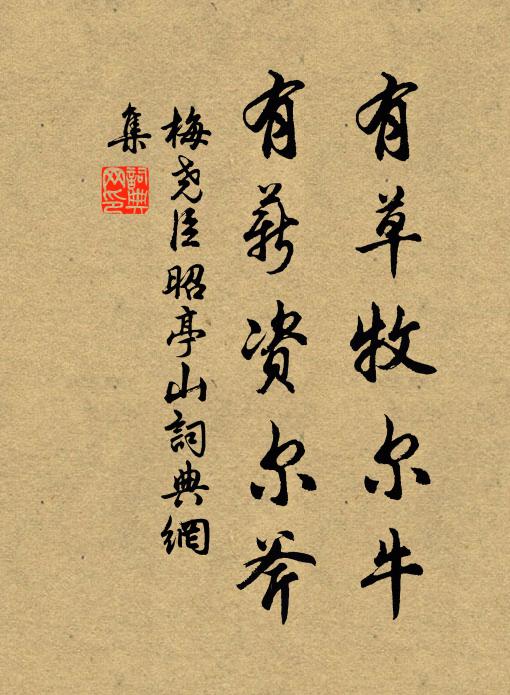 有草牧尔牛
有薪资尔斧
梅尧臣昭亭山詞典網
集
詞典网印